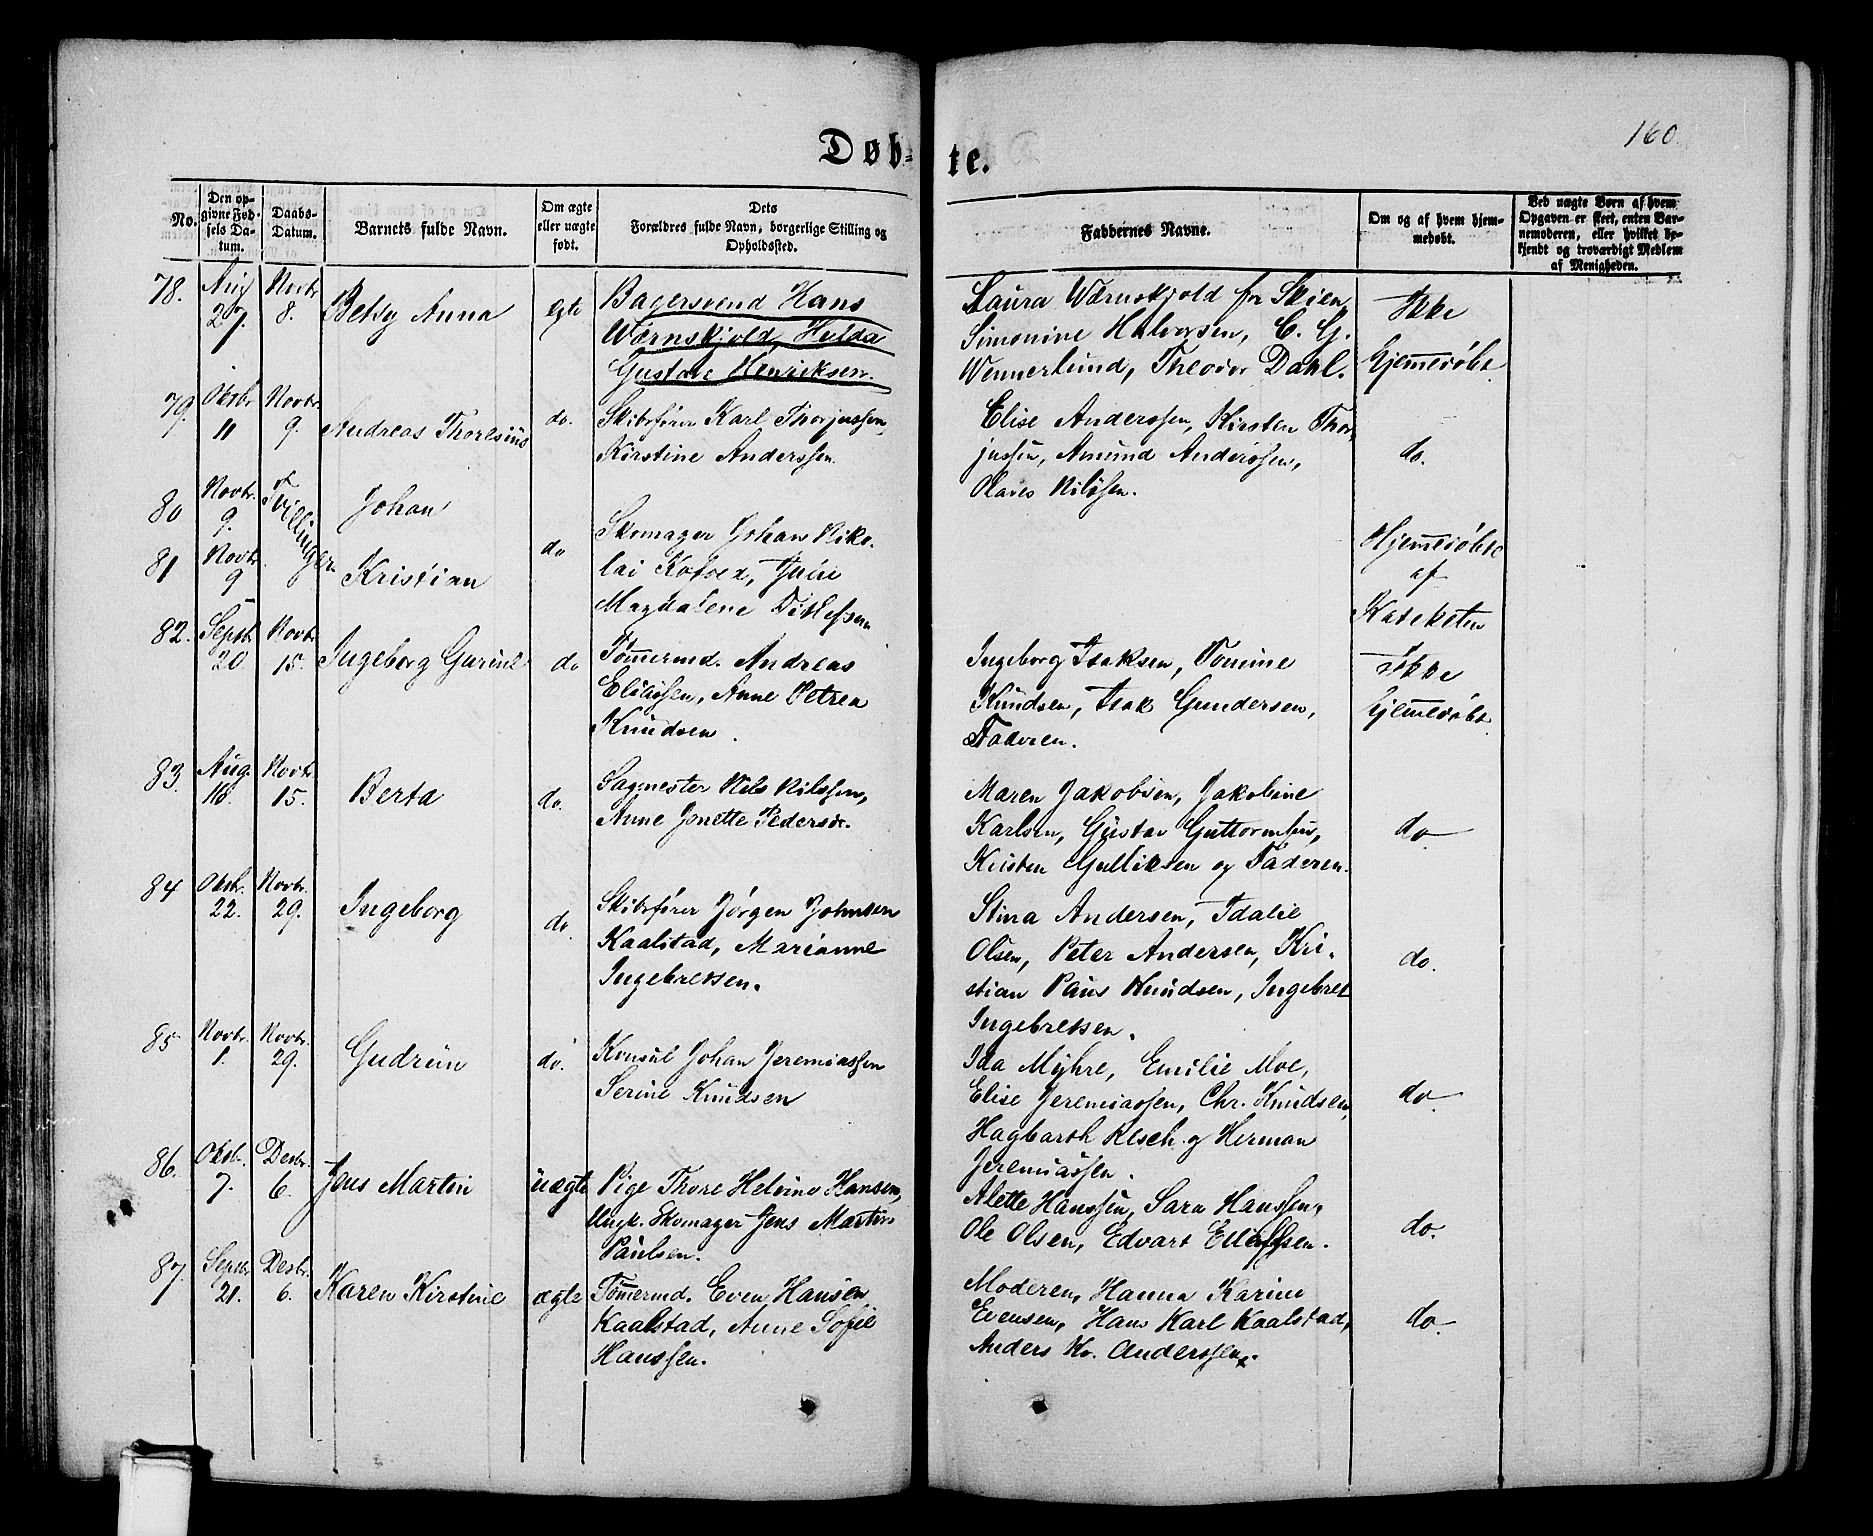 160.
Døb-
te.
No.
Den op-
givne Fød-
sels Da-
tum.
Daabs-
Datum.
Barnets fulde Navn.
Om ægte
eller uægte
født.
Dets
Forældres fulde Navn, borgerlige Stilling og
Opholdssted.
Faddernes Navne.
Om og af hvem hjem-
medøbt.
Ved uægte Børn af hvem
Opgaven er skeet, enten Bar-
nemoderen, eller hvilket be-
kjendt og troværdigt Medlem
af Menigheden.
78.
Aug
27.
Novbr
8.
Betsy Anna
egte
Bagersvend Hans
Wærnskjold, Hulda
Gustave Henriksen.
Laura Wærnskjold fr Skien,
Simonine Halvorsen, C. G.
Wennerlund, Theodor Dahl.
Ikke
hjemedøbt.
79.
Oktbr
11
Novbr.
9.
Andreas Thoresius
do.
Skibsfører Karl Thorjussen,
Kirstine Anderssen.
Elise Anderssen, Kirsten Thor-
jussen, Amund Anderssen,
Olaves Nilssen.
do.
80
Novbr.
9.
Tvillinger.
Johan
81
Novbr
9
Kristian
do
Skomager Johan Niko-
lai Kofoed, Juliе
Magdalene Ditlefsen
Hjemedøbte
af
Kateketen
82.
Septbr
20
Novbr.
15.
Ingeborg Gurine
do
Tømermd. Andreas
Eliassen, Anne Petrea
Knudsen.
Ingeborg Isaksen, Tomine
Knudsen, Isak Gundersen,
Faderen.
Ikke
hjemedøbt.
83.
Aug.
18.
Novbr.
15.
Berta
do.
Sagmester Nils Nilssen,
Anne Jonette Pedersdr.
Maren Jakobsen, Jakobine
Karlsen, Gustav Guttormsen,
Kristen Gulliksen og Faderen.
do
84
Oktbr.
22.
Novbr.
29.
Ingeborg
do.
Skibsfører Jørgen Johnsen
Kaalstad, Marianne
Ingebretsen.
Stina Andersen, Idalie
Olsen, Peter Andersen, Kri-
stian Paus Knudsen, Ingebret
Ingebretsen.
do.
85
Novbr.
1.
Novbr.
29.
Gudrun
do.
Konsul Johan Jeremiassen
Serine Knudsen
Ida Myhre, Emilie Moe,
Elise Jeremiassen, Chr. Knudsen,
Hagbarth Resch. og Herman
Jeremiassen.
do.
86.
Oktbr.
7.
Desbr.
6.
Jens Martin
uægte
Pige Thore Helvine Hansen,
Ungk. Skomager Jens Martin
Paulsen.
Alette Hanssen, Sara Hanssen,
Ole Olsen, Edvart Ellefsen.
do.
87.
Septbr
21.
Desbr.
6.
Karen Kirstine
ægte
Tømermd. Even Hansen
Kaalstad, Anne Sofie
Hanssen.
Moderen, Hanna Karine
Evensen, Hans Karl Kaalstad,
Anders Kr. Anderssen.
do.